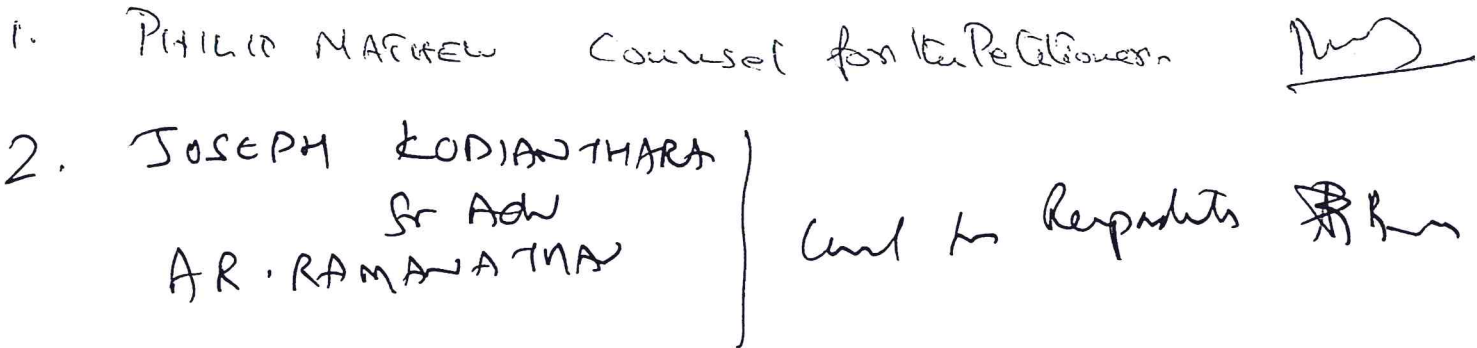 1. PHILIP MATHEW Counsel for the Petitioners
2. JOSEPH KODIANTHARA
Sr Adv
A R. RAMANATHAN
for Respondents